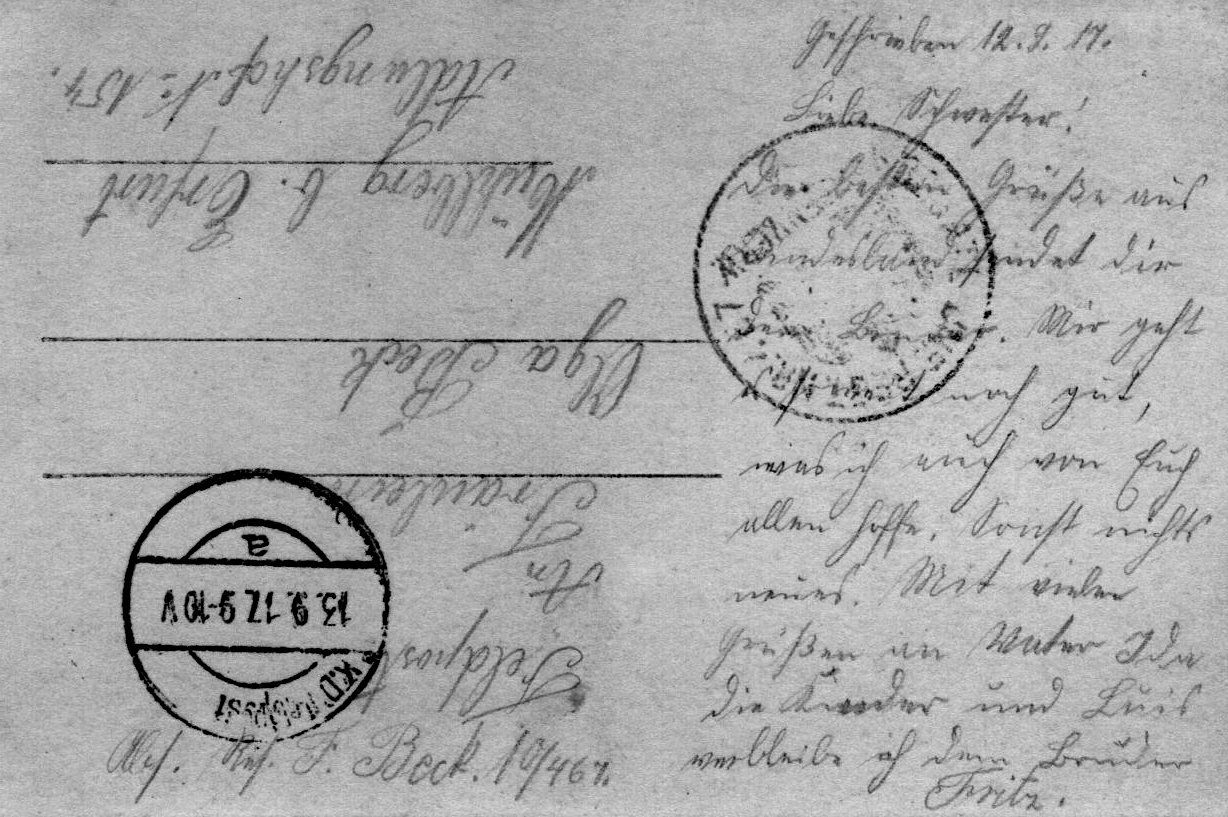 Geschrieben 12.9.17.
Liebe Schwester!
Die besten Grüße aus
sendet dir
dein Bruder. Mir geht
es noch gut,
was ich auch von Euch
allen hoffe. Sonst nichts
neues. Mit vielen
Grüßen an Vater Ida
die Kinder und Luis
verbleibe ich dein Bruder
Fritz.
Feldpost
An
Fräulein
Olga Beck
Mühlberg b. Erfurt
Adlungshof № 154.
Abs. Res. F. Beck. 10/467.
K.D. Feldpost
13.9.17 9-10 V
a